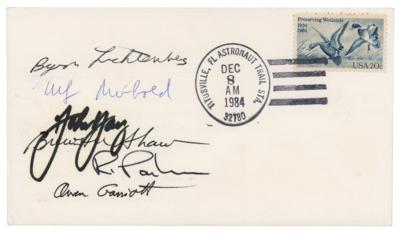 Byron Lichtenberg
Ulf Merbold
John Young
Brewster Shaw
R. Parker
Owen Garriott
TITUSVILLE, FL ASTRONAUT TRAIL STA.
DEC
8
AM
1984
32780
Preserving Wetlands
1934
1984
USA 20c